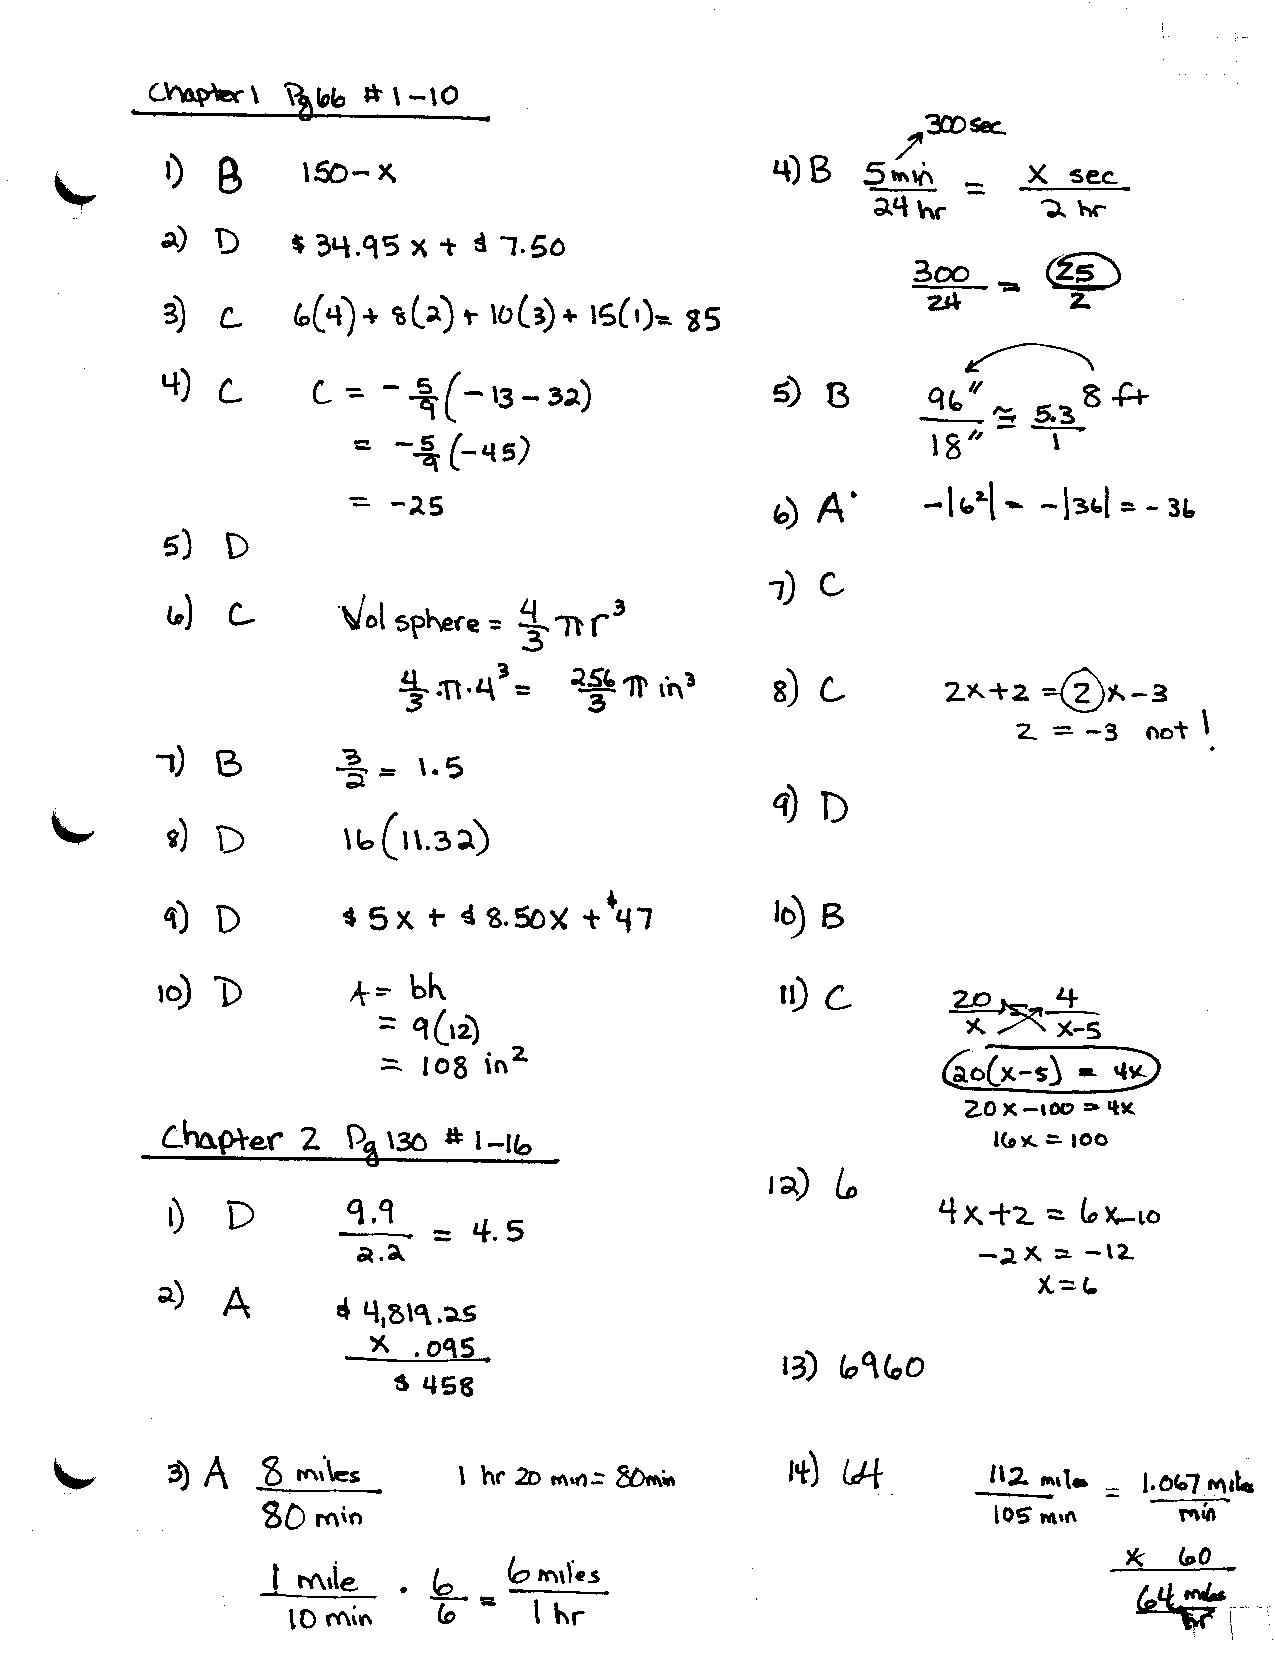 Chapter 1 Pg 66 # 1-10
1) B 150-x
2) D $34.95x + $7.50
3) C 6(4) + 8(2) + 10(3) + 15(1) = 85
4) C C = -5/9(-13-32)
= -5/9(-45)
= -25
5) D
6) C Vol sphere = 4/3 πr³
4/3·π·4³ = 256/3 π in³
7) B 3/2 = 1.5
8) D 16(11.32)
9) D $5x + $8.50x + $47
10) D A = bh
= 9(12)
= 108 in²
Chapter 2 Pg 130 # 1-16
1) D 9.9/2.2 = 4.5
2) A $4,819.25
x .095
$458
3) A 8 miles/80 min 1 hr 20 min = 80min
1 mile/10 min · 6/6 = 6 miles/1 hr
300 sec
4) B 5 min/24 hr = x sec/2 hr
300/24 = 25/2
5) B 96"/18" ≅ 5.3/1 8 ft
6) A -|6²| = -|36| = -36
7) C
8) C 2x+2 = 2x-3
2 = -3 not!
9) D
10) B
11) C 20/x = 4/x-5
20(x-5) = 4x
20x-100 = 4x
16x = 100
12) 6
4x+2 = 6x-10
-2x = -12
x = 6
13) 6960
14) 64 112 miles/105 min = 1.067 miles/min
x 60
64 miles/hr